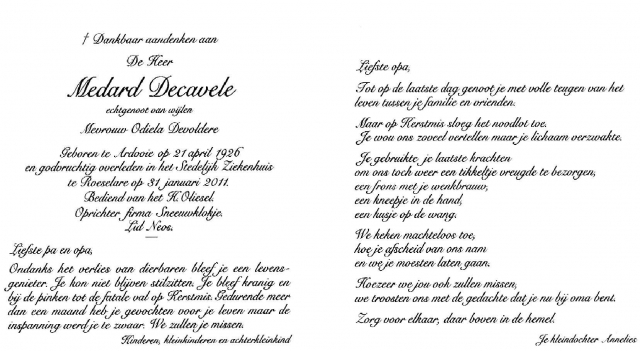 † Dankbaar aandenken aan
De Heer
Medard Decavele
echtgenoot van wijlen
Mevrouw Odiela Devoldere
Geboren te Ardooie op 21 april 1926
en godvruchtig overleden in het Stedelijk Ziekenhuis
te Roeselare op 31 januari 2011.
Bediend van het H. Oliesel.
Oprichter firma Sneeuwklokje.
Lid Neos.
Liefste pa en opa,
Ondanks het verlies van dierbaren bleef je een levens-
genieter. Je kon niet blijven stilzitten. Je bleef kranig en
bij de pinken tot de fatale val op Kerstmis. Gedurende meer
dan een maand heb je gevochten voor je leven maar de
inspanning werd je te zwaar. We zullen je missen.
Kinderen, kleinkinderen en achterkleinkind
Liefste opa,
Tot op de laatste dag genoot je met volle teugen van het
leven tussen je familie en vrienden.
Maar op Kerstmis sloeg het noodlot toe.
Je wou ons zoveel vertellen maar je lichaam verzwakte.
Je gebruikte je laatste krachten
om ons toch weer een tikkeltje vreugde te bezorgen,
een frons met je wenkbrauw,
een kneepje in de hand,
een kusje op de wang.
We keken machteloos toe,
hoe je afscheid van ons nam
en we je moesten laten gaan.
Hoezeer we jou ook zullen missen,
we troosten ons met de gedachte dat je nu bij oma bent.
Zorg voor elkaar, daar boven in de hemel.
Je kleindochter Annelies